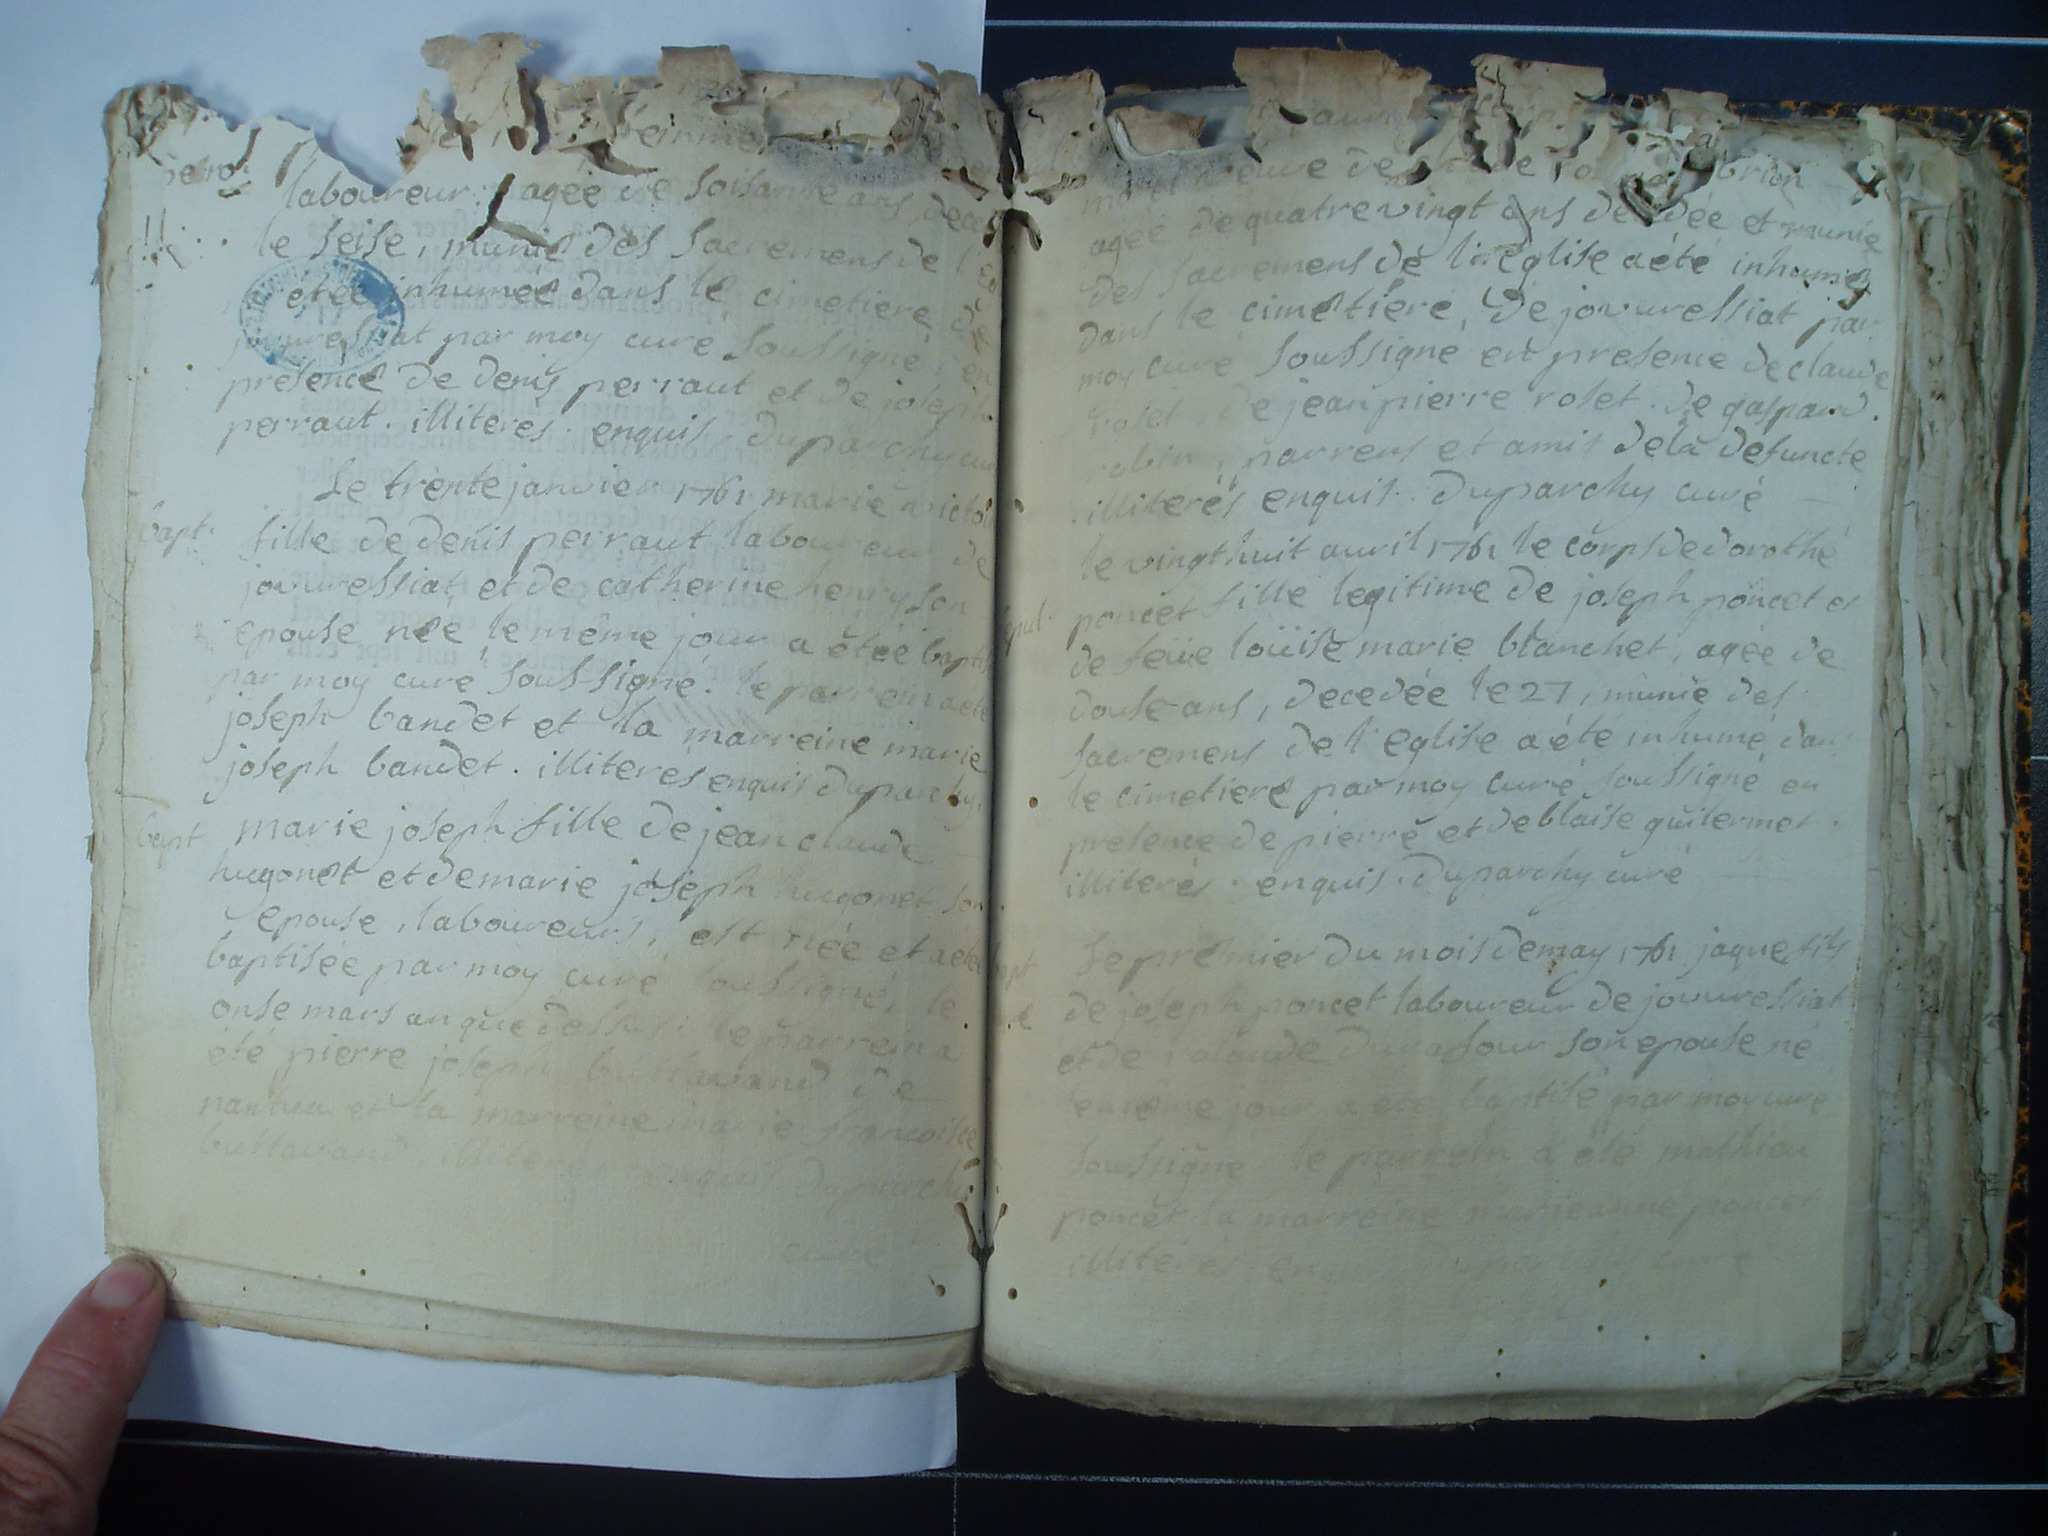 laboureur agée de soisante ans deced
le seise, munie des sacremens de l'eg
etée inhumée dans le cimetiere de
jouvressiat par moy curé soussigné, en
presence de denis perraut et de joseph
perraut. illiteres enquis. duparchy curé
Le trente janvier 1761 marie victoi
bapt. fille de denis perraut laboureur de
jouvressiat et de catherine henry son
epouse née le même jour a étée baptis
par moy curé soussigné. le parrein a été
joseph bandet et la marreine marie
joseph bandet. illiteres enquis duparchy.
bapt marie joseph fille de jean claude
hugonet et de marie joseph hugonet son
epouse, laboureurs, est née et a étée
baptisée par moy curé soussigné, le
onse mars an que dessus. le parrein a
été pierre joseph buttavand de
et la marreine marie françoise
buttavand. illiteres enquis duparchy
curé
veuve de
agée de quatre vingt ans decedée et munie
des sacremens de l'eglise a été inhumée
dans le cimetiere de jouvressiat par
moy curé soussigné en presence de claude
rolet, de jean pierre rolet. de gaspard.
robin, parrens et amis de la defuncte
illiterés enquis. duparchy curé
le vingt huit avril 1761 le corps de dorothé
poncet fille legitime de joseph poncet et
de feüe loüise marie blanchet, agée de
douse ans, decedée le 27, munie des
sacremens de l'eglise a été inhumé dans
le cimetiere par moy curé soussigné en
presence de pierre et de blaise guilermet.
illiterés. enquis. duparchy curé
bapt Le premier du mois de may 1761 jaque fils
de joseph poncet laboureur de jouvressiat
et de claude son epouse né
le même jour a été baptisé par moy curé
soussigné le parrein a été mathieu
poncet la marreine marie anne poncet
illitérés enquis duparchy curé